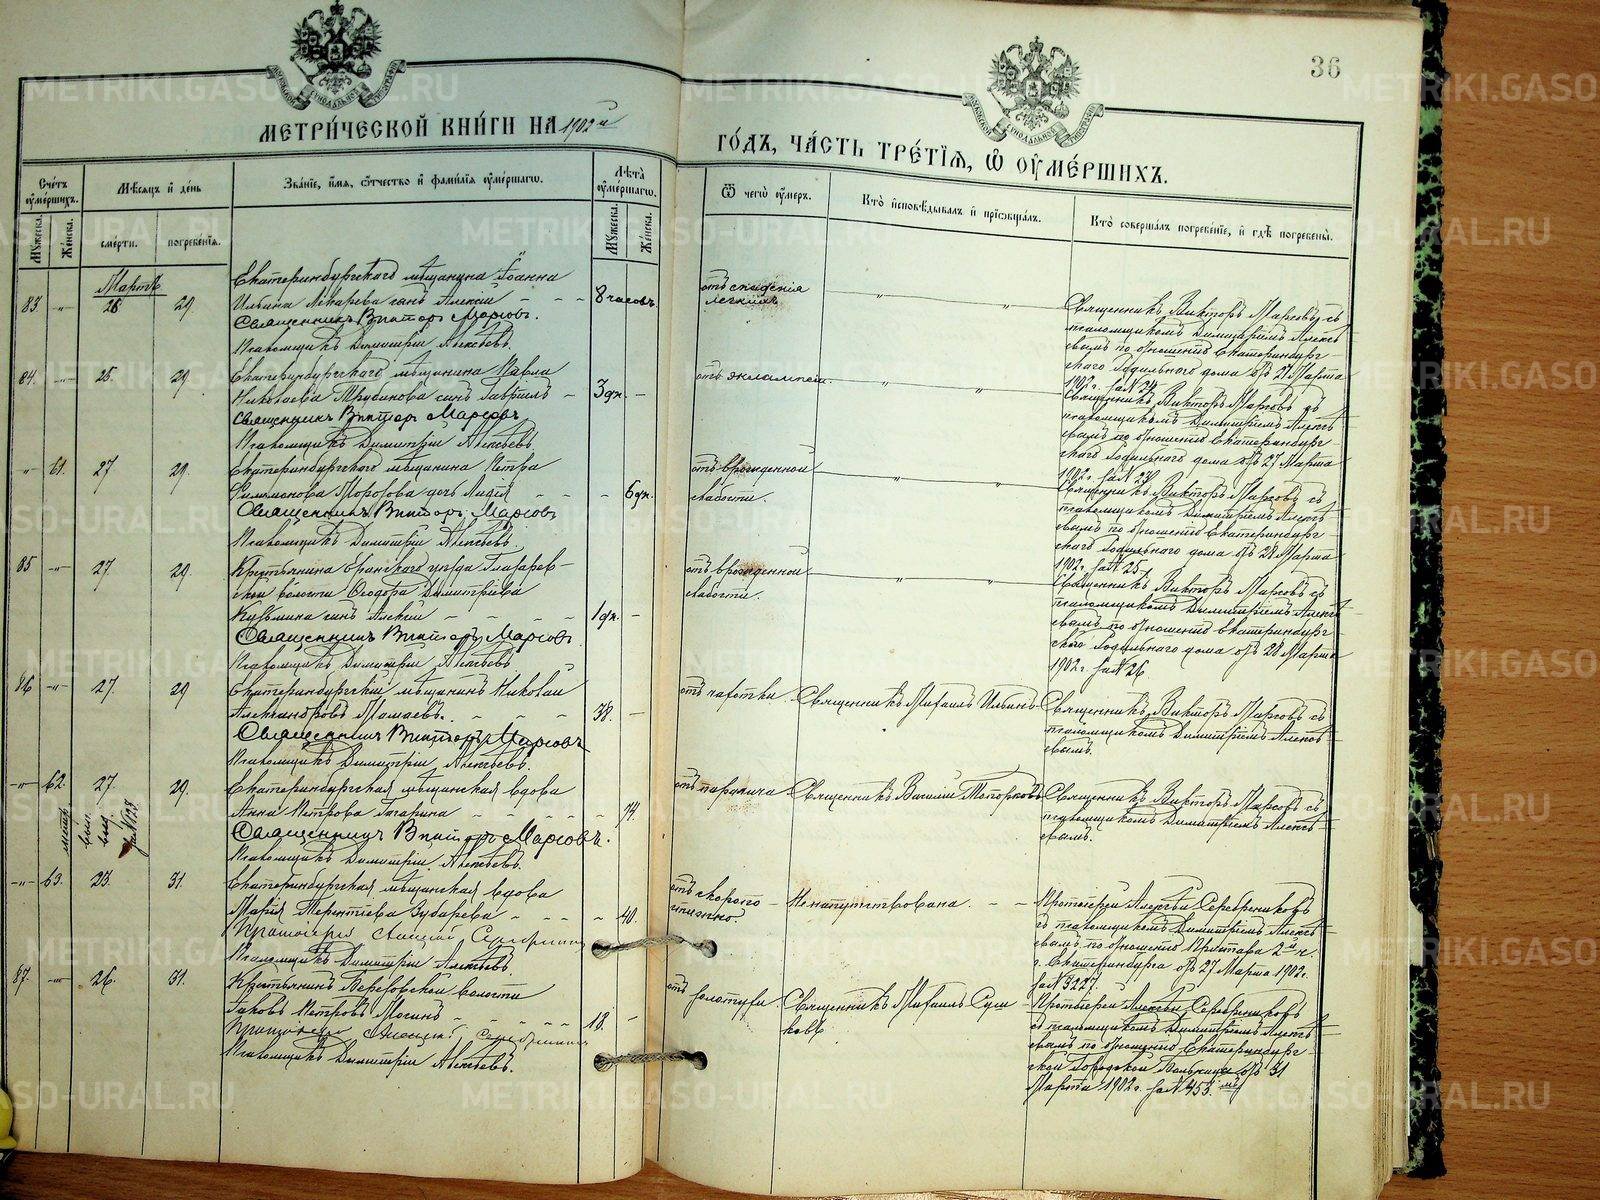 36
МЕТРИЧЕСКОЙ КНИГИ НА 1902й
ГОДЪ, ЧАСТЬ ТРЕТІЯ, Ѡ ОУМЕРШИХЪ.
Счетъ оумершихъ.
Мужеска.
Женска.
Мѣсяцъ и день
смерти.
погребенія.
Званіе, имя, отчество и фамилія оумершагѡ.
Лѣта оумершагѡ.
Мужеска.
Женска.
Ѿ чегѡ оумеръ.
Кто исповѣдывалъ и пріобщалъ.
Кто совершалъ погребеніе, и гдѣ погребены.
Мартъ
83. 28 29 Екатеринбургскаго мѣщанина Іоанна
Ильина сынъ Алексій 8 часовъ
Священникъ Викторъ Марсовъ.
Псаломщикъ Димитрій Алексѣевъ.
отъ спаденія
легкихъ
Священникъ Викторъ Марсовъ съ
псаломщикомъ Димитріемъ Алексѣ-
вымъ по отношенію Екатеринбург-
скаго Родильнаго дома отъ 27 Марта
1902 г. за № 24
84. 25. 29 Екатеринбургскаго мѣщанина Павла
Николаева Трубанова сынъ Гавріилъ 3 дн.
Священникъ Викторъ Марсовъ
Псаломщикъ Димитрій Алексѣевъ
отъ эклампсіи.
Священникъ Викторъ Марсовъ съ
псаломщикомъ Димитріемъ Алексѣ-
вымъ по отношенію Екатеринбург-
скаго Родильнаго дома отъ 27 Марта
1902 г. за №
61. 27 29 Екатеринбургскаго мѣщанина Петра
Филимонова Морозова дочь Лидія 6 дн.
Священникъ Викторъ Марсовъ
Псаломщикъ Димитрій Алексѣевъ.
отъ врожденной
слабости.
Священникъ Викторъ Марсовъ съ
псаломщикомъ Димитріемъ Алексѣ-
вымъ по отношенію Екатеринбург-
скаго Родильнаго дома отъ 28 Марта
1902 г. за № 25
85 27 29. Крестьянина Оханскаго уѣзда
волости Ѳеодора Димитріева
Кузьмина сынъ Алексій 1 дн.
Священникъ Викторъ Марсовъ
Псаломщикъ Димитрій Алексѣевъ
отъ врожденной
слабости.
Священникъ Викторъ Марсовъ съ
псаломщикомъ Димитріемъ Алексѣ-
вымъ по отношенію Екатеринбург-
скаго Родильнаго дома отъ 28 Марта
1902 г. за № 26.
86 27. 29 Екатеринбургскій мѣщанинъ Николай
Александровъ 38.
Священникъ Викторъ Марсовъ
Псаломщикъ Димитрій Алексѣевъ.
отъ чахотки
Священникъ Михаилъ Ильинъ
Священникъ Викторъ Марсовъ съ
псаломщикомъ Димитріемъ Алексѣ-
вымъ.
62. 27. 29. Екатеринбургская мѣщанская вдова
Анна Петрова Гагарина 74.
Священникъ Викторъ Марсовъ.
Псаломщикъ Димитрій Алексѣевъ.
отъ паралича
Священникъ Василій Топорковъ
Священникъ Викторъ Марсовъ съ
псаломщикомъ Димитріемъ Алексѣ-
вымъ.
63. 23. 31. Екатеринбургская мѣщанская вдова
Марія Терентіева Зубарева 40.
Протоіерей Алексій Серебренниковъ
Псаломщикъ Димитрій Алексѣевъ.
отъ скоропо-
стижно.
Не напутствована.
Протоіерей Алексѣй Серебренниковъ
съ псаломщикомъ Димитріемъ Алексѣ-
вымъ по отношенію Пристава 2й ч.
г. Екатеринбурга отъ 27 Марта 1902 г.
за № 3227.
87. 26. 31. Крестьянинъ Березовской волости
Іаковъ Петровъ Мосинъ 18.
Протоіерей Алексій Серебренниковъ
Псаломщикъ Димитрій Алексѣевъ.
отъ золотухи
Священникъ Михаилъ
Протоіерей Алексѣй Серебренниковъ
съ псаломщикомъ Димитріемъ Алексѣ-
вымъ по отношенію Екатеринбург-
ской Городской Больницы отъ 31
Марта 1902 г. за № 453.
METRIKI.GASO-URAL.RU